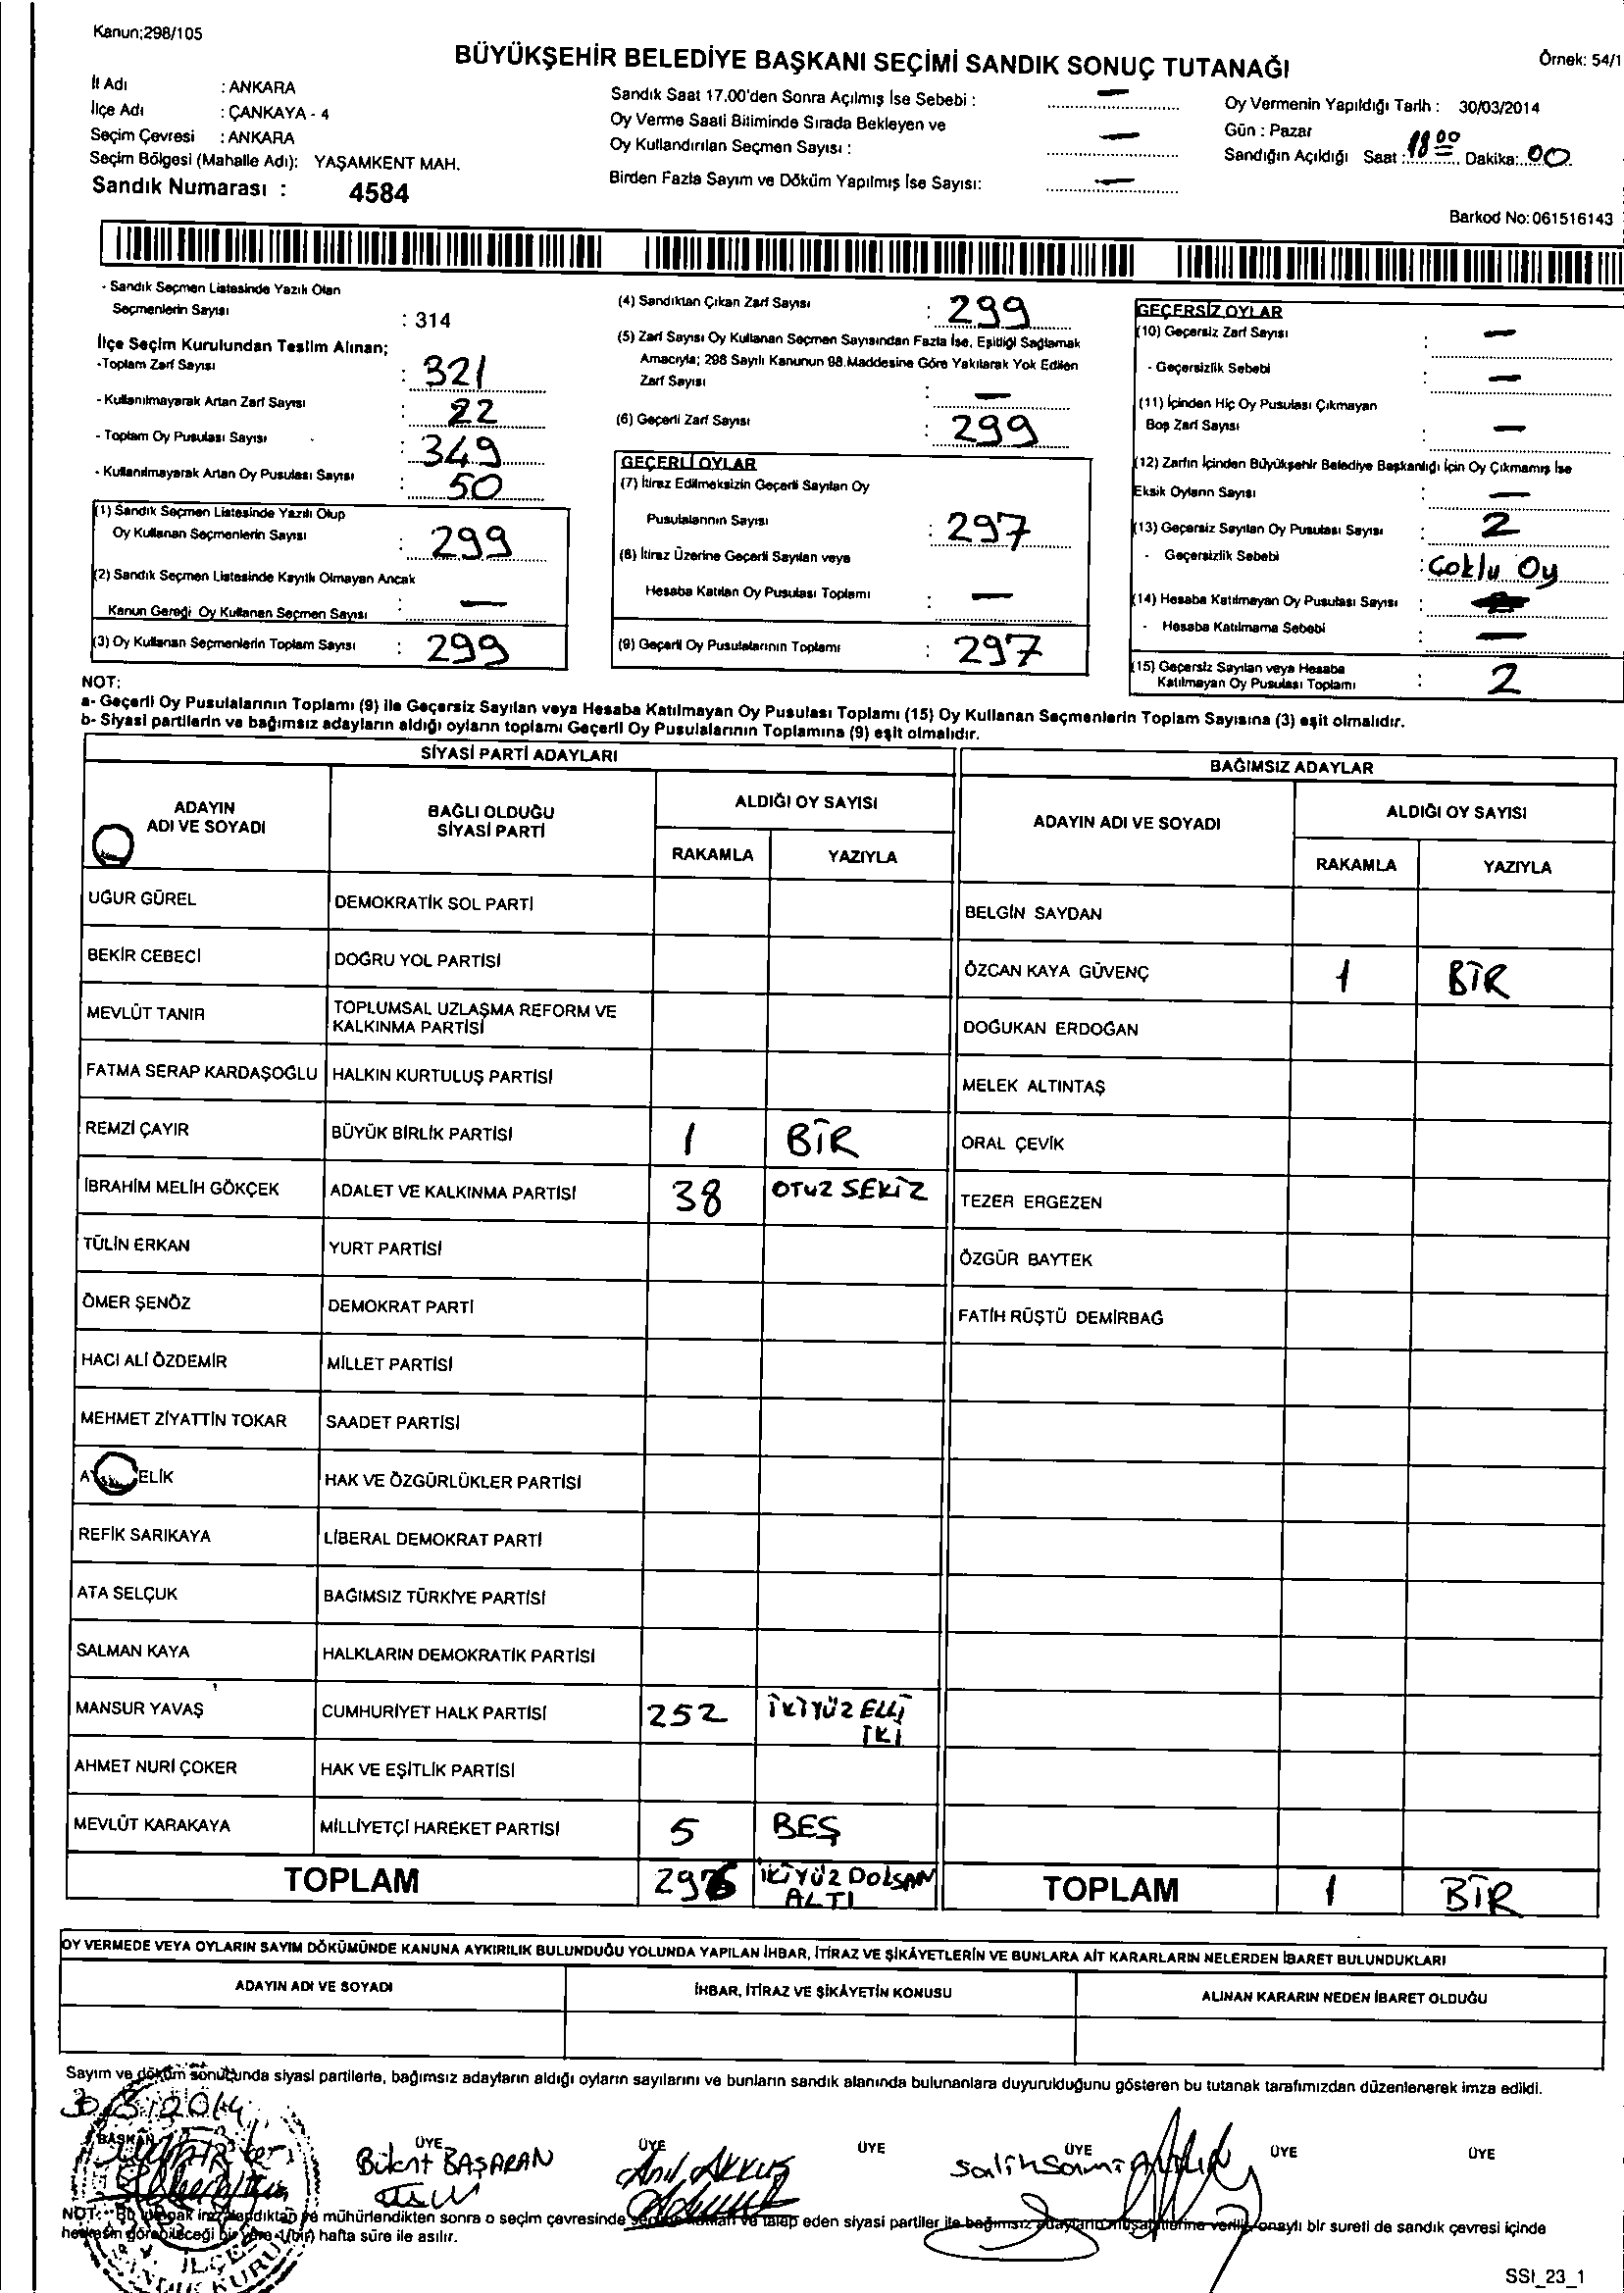 Kanun;298/105
BÜYÜKŞEHİR BELEDİYE BAŞKANI SEÇİMİ SANDIK SONUÇ TUTANAĞI
Örnek: 54/1
İl Adı : ANKARA
İlçe Adı : ÇANKAYA - 4
Seçim Çevresi : ANKARA
Seçim Bölgesi (Mahalle Adı): YAŞAMKENT MAH.
Sandık Numarası : 4584
Sandık Saat 17.00'den Sonra Açılmış İse Sebebi : —
Oy Verme Saati Bitiminde Sırada Bekleyen ve
Oy Kullandırılan Seçmen Sayısı : —
Birden Fazla Sayım ve Döküm Yapılmış İse Sayısı: —
Oy Vermenin Yapıldığı Tarih : 30/03/2014
Gün : Pazar
Sandığın Açıldığı Saat : 18 00 Dakika: 00
Barkod No: 061516143
- Sandık Seçmen Listesinde Yazılı Olan
Seçmenlerin Sayısı : 314
İlçe Seçim Kurulundan Teslim Alınan;
-Toplam Zarf Sayısı : 321
- Kullanılmayarak Artan Zarf Sayısı : 22
- Toplam Oy Pusulası Sayısı : 349
- Kullanılmayarak Artan Oy Pusulası Sayısı : 50
(1) Sandık Seçmen Listesinde Yazılı Olup
Oy Kullanan Seçmenlerin Sayısı : 299
(2) Sandık Seçmen Listesinde Kayıtlı Olmayan Ancak
Kanun Gereği Oy Kullanan Seçmen Sayısı : —
(3) Oy Kullanan Seçmenlerin Toplam Sayısı : 299
(4) Sandıktan Çıkan Zarf Sayısı : 299
(5) Zarf Sayısı Oy Kullanan Seçmen Sayısından Fazla İse, Eşitliği Sağlamak
Amacıyla; 298 Sayılı Kanunun 98.Maddesine Göre Yakılarak Yok Edilen
Zarf Sayısı : —
(6) Geçerli Zarf Sayısı : 299
GEÇERLİ OYLAR
(7) İtiraz Edilmeksizin Geçerli Sayılan Oy
Pusulalarının Sayısı : 297
(8) İtiraz Üzerine Geçerli Sayılan veya
Hesaba Katılan Oy Pusulası Toplamı : —
(9) Geçerli Oy Pusulalarının Toplamı : 297
GEÇERSİZ OYLAR
(10) Geçersiz Zarf Sayısı : —
- Geçersizlik Sebebi : —
(11) İçinden Hiç Oy Pusulası Çıkmayan
Boş Zarf Sayısı : —
(12) Zarfın İçinden Büyükşehir Belediye Başkanlığı İçin Oy Çıkmamış İse
Eksik Oyların Sayısı : —
(13) Geçersiz Sayılan Oy Pusulası Sayısı : 2
- Geçersizlik Sebebi : Çoklu Oy
(14) Hesaba Katılmayan Oy Pusulası Sayısı :
- Hesaba Katılmama Sebebi : —
(15) Geçersiz Sayılan veya Hesaba
Katılmayan Oy Pusulası Toplamı : 2
NOT:
a- Geçerli Oy Pusulalarının Toplamı (9) ile Geçersiz Sayılan veya Hesaba Katılmayan Oy Pusulası Toplamı (15) Oy Kullanan Seçmenlerin Toplam Sayısına (3) eşit olmalıdır.
b- Siyasi partilerin ve bağımsız adayların aldığı oyların toplamı Geçerli Oy Pusulalarının Toplamına (9) eşit olmalıdır.
SİYASİ PARTİ ADAYLARI
ADAYIN
ADI VE SOYADI
BAĞLI OLDUĞU
SİYASİ PARTİ
ALDIĞI OY SAYISI
RAKAMLA YAZIYLA
UĞUR GÜREL DEMOKRATİK SOL PARTİ
BEKİR CEBECİ DOĞRU YOL PARTİSİ
MEVLÜT TANIR TOPLUMSAL UZLAŞMA REFORM VE
KALKINMA PARTİSİ
FATMA SERAP KARDAŞOĞLU HALKIN KURTULUŞ PARTİSİ
REMZİ ÇAYIR BÜYÜK BİRLİK PARTİSİ 1 BİR
İBRAHİM MELİH GÖKÇEK ADALET VE KALKINMA PARTİSİ 38 OTUZ SEKİZ
TÜLİN ERKAN YURT PARTİSİ
ÖMER ŞENÖZ DEMOKRAT PARTİ
HACI ALİ ÖZDEMİR MİLLET PARTİSİ
MEHMET ZİYATTİN TOKAR SAADET PARTİSİ
ELİK HAK VE ÖZGÜRLÜKLER PARTİSİ
REFİK SARIKAYA LİBERAL DEMOKRAT PARTİ
ATA SELÇUK BAĞIMSIZ TÜRKİYE PARTİSİ
SALMAN KAYA HALKLARIN DEMOKRATİK PARTİSİ
MANSUR YAVAŞ CUMHURİYET HALK PARTİSİ 252 İKİYÜZ ELLİ
İKİ
AHMET NURİ ÇOKER HAK VE EŞİTLİK PARTİSİ
MEVLÜT KARAKAYA MİLLİYETÇİ HAREKET PARTİSİ 5 BEŞ
TOPLAM 296 İKİYÜZ DOKSAN
ALTI
BAĞIMSIZ ADAYLAR
ADAYIN ADI VE SOYADI
ALDIĞI OY SAYISI
RAKAMLA YAZIYLA
BELGİN SAYDAN
ÖZCAN KAYA GÜVENÇ 1 BİR
DOĞUKAN ERDOĞAN
MELEK ALTINTAŞ
ORAL ÇEVİK
TEZER ERGEZEN
ÖZGÜR BAYTEK
FATİH RÜŞTÜ DEMİRBAĞ
TOPLAM 1 BİR
OY VERMEDE VEYA OYLARIN SAYIM DÖKÜMÜNDE KANUNA AYKIRILIK BULUNDUĞU YOLUNDA YAPILAN İHBAR, İTİRAZ VE ŞİKÂYETLERİN VE BUNLARA AİT KARARLARIN NELERDEN İBARET BULUNDUKLARI
ADAYIN ADI VE SOYADI İHBAR, İTİRAZ VE ŞİKÂYETİN KONUSU ALINAN KARARIN NEDEN İBARET OLDUĞU
Sayım ve döküm sonucunda siyasi partilerle, bağımsız adayların aldığı oyların sayılarını ve bunların sandık alanında bulunanlara duyurulduğunu gösteren bu tutanak tarafımızdan düzenlenerek imza edildi.
30/3/2014
BAŞKAN ÜYE ÜYE ÜYE ÜYE ÜYE ÜYE
Bülent BAŞARAN Anıl AKKUŞ Salih Sami
NOT: mühürlendikten sonra o seçim çevresinde talep eden siyasi partiler ile bağımsız onaylı bir sureti de sandık çevresi içinde
herkesin görebileceği bir yere 1(bir) hafta süre ile asılır.
İLÇE
SANDIK KURULU
SSI_23_1